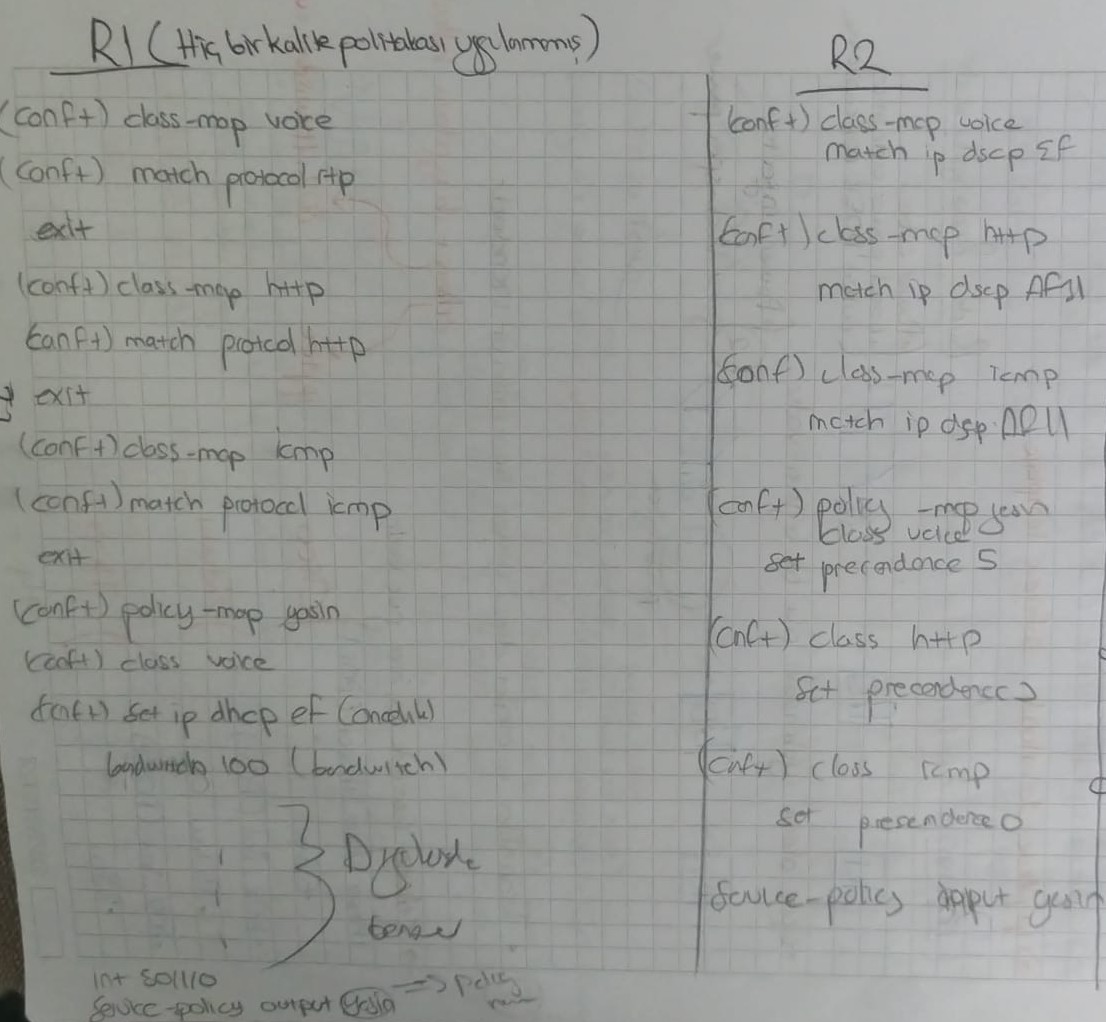 R1 (Hiç bir kalite politakası uygulanmamış)
(conft) class-map voice
(conft) match protocol rtp
exit
(conft) class-map http
(conft) match protocol http
exit
(conft) class-map icmp
(conft) match protocol icmp
exit
(conft) policy-map yasin
(conft) class voice
(conft) set ip dhcp ef (öncelik)
100 (bandwitch)
int S0/1/0
service-policy output yasin => policy
R2
(conft) class-map voice
match ip dscp EF
(conft) class-map http
match ip dscp AF31
(conf) class-map icmp
match ip dscp AF11
(conft) policy-map yasin
class voice
set precendence 5
(cnft) class http
set precendence 3
(cnft) class icmp
set presendence 0
service-policy input yasin